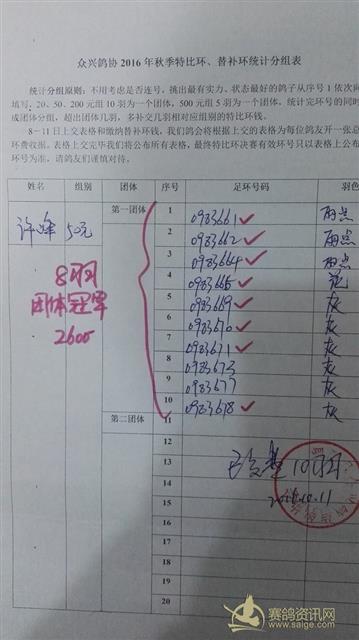 众兴鸽协 2016 年秋季特比环、替补环统计分组表
统计分组原则：不用考虑是否连号，挑出最有实力、状态最好的鸽子从序号 1 依次向
填写，20、50、200 元组 10 羽为一个团体，500 元组 5 羽为一个团体，统计完环号的同时
成团体分组，超出团体几羽，多补交几羽相对应组别的特比环钱。
8－11 日上交表格和缴纳替补环钱，我们鸽会将根据上交的表格为每位鸽友开一张总
环费收据。表格上交完毕我们将公布所有表格，最终特比环决赛有效环号只以表格上公布
环号为准，请鸽友们谨慎对待。
姓名 组别 团体 序号 足环号码 羽色
许峰 50元 第一团体 1 0983661 ✓ 雨点
2 0983662 ✓ 雨点
3 0983664 ✓ 雨点
4 0983665 ✓
5 0983669 ✓ 灰
6 0983670 ✓ 灰
7 0983671 ✓ 灰
8 0983673 灰
9 0983677 灰
10 0983678 ✓ 灰
8羽
团体冠军
2600
第二团体 11
12
13 10羽
14
15 2016.10.11
16
17
18
19
20
赛鸽资讯网
www.saige.com